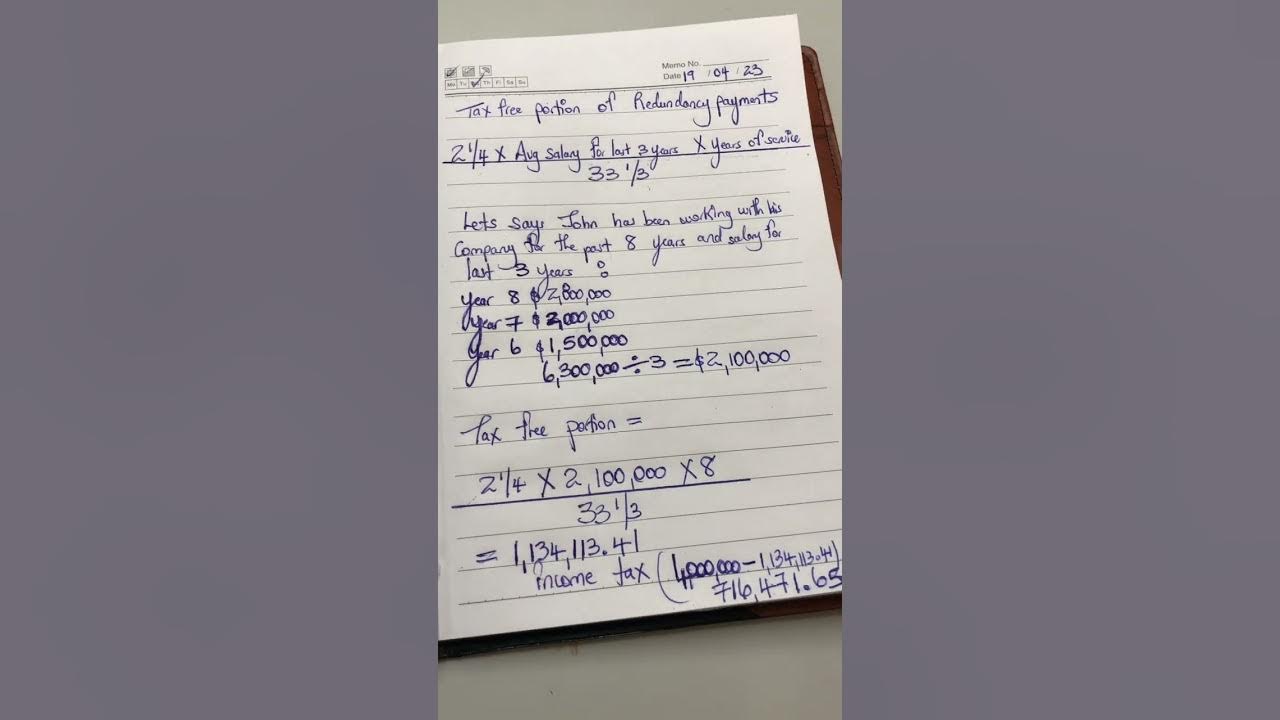 Memo No.
Mo Tu Th Fr Sa Su
Date 19 / 04 / 23
Tax free portion of Redundancy payments
2 1/4 X Avg salary for last 3 years X years of service
33 1/3
Lets says John has been working with his
Company for the past 8 years and salary for
last 3 years :
year 8 $2,800,000
year 7 $2,000,000
year 6 $1,500,000
6,300,000 ÷ 3 = $2,100,000
Tax free portion =
2 1/4 X 2,100,000 X 8
33 1/3
= 1,134,113.41
income tax (4,000,000 - 1,134,113.41)
716,471.65